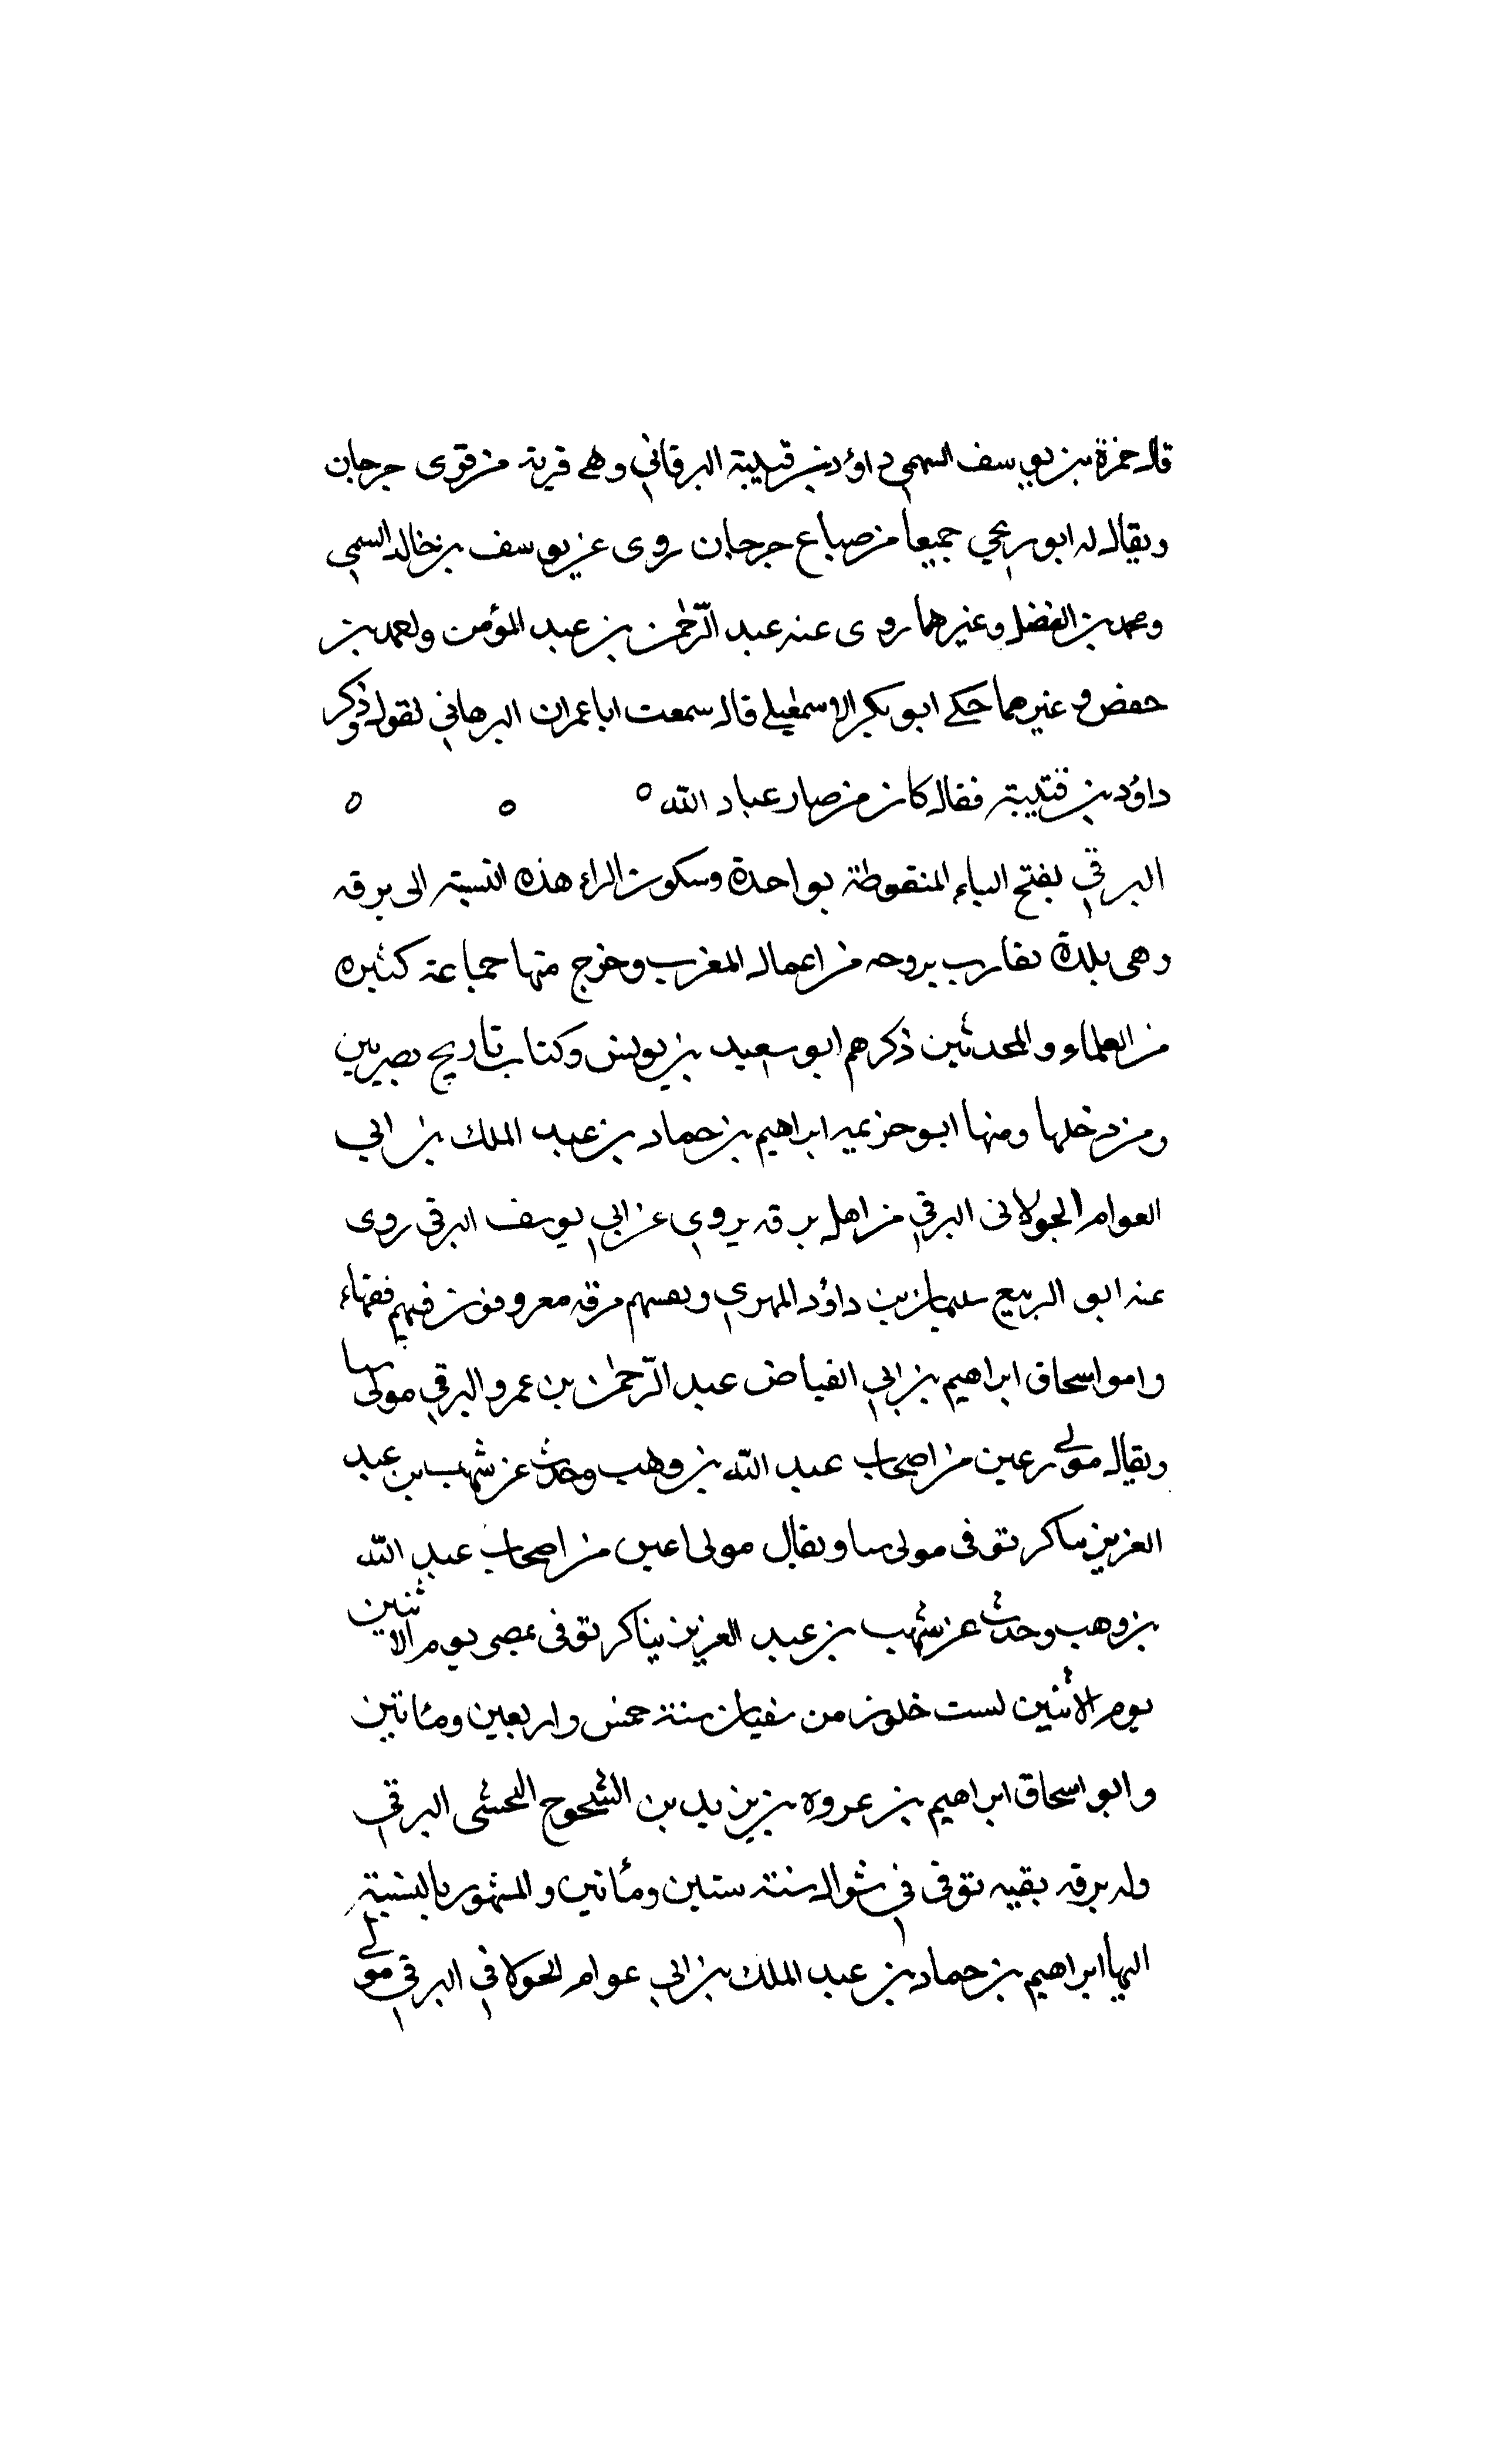 قال حمزة بن يوسف السهمي داؤد بن قتيبة البرقاني وهي قرية من قرى جرجان
ويقال له ابو رعجي جميعا من صباع جرجان روى عن يوسف بن خالد السمي
ومحمد بن الفضل وغيرهما روى عنه عبد الرّحمٰن بن عبد المؤمن ومحمد بن
حفص وغيرهما حكي ابو بكر الاسمٰعيلي قال سمعت ابا عمران البرهاني يقول ذكر
داؤد بن قتيبة فقال كان من صار عباد اللّه
البرقي بفتح الباء المنقوطة بواحدة وسكون الراء هذه النسبة الى برقه
وهى بلدة تقارب بروحه من اعمال المغرب وخرج منها جماعة كثيره
من العلماء والمحدثين ذكرهم ابو سعيد بن يونس وكتاب تاريخ بصريين
ومن دخلها ومنها ابو حزيميه ابراهيم بن حماد بن عبد الملك بن ابي
العوام الجولانى البرقي من اهل برقه يروي عن ابي يوسف البرقى روى
عنه ابو الربيع سليمان بن داؤد المهري وبعسهم مرقه معروفون فيهم فقهاء
وامو اسحاق ابراهيم بن ابي الفياض عبد الرّحمٰن بن عمرو البرقي مولى سا
ويقال مولى رعين من اصحاب عبد اللّه بن وهب وحدث عن شهب بن عبد
العزيز ساكر توفى مولى سا ويقال مولى اعين من اصحاب عبد اللّه
بن وهب وحدث عن شهب بن عبد العزيز يناكر توفى بمصر يوم الاثنين
يوم الاثنين لست خلون من سفيان سنة خمس واربعين ومئاتين
وابو اسحاق ابراهيم بن عروه بن يزيد بن الشحوج الحشى البرقي
وله برقه بقيه توفى في شوال سنة ستين ومأتين والمشهور بالنسبة
اليها ابراهيم بن حماد بن عبد الملك بن ابي عوام الحولاني البرقي مولى